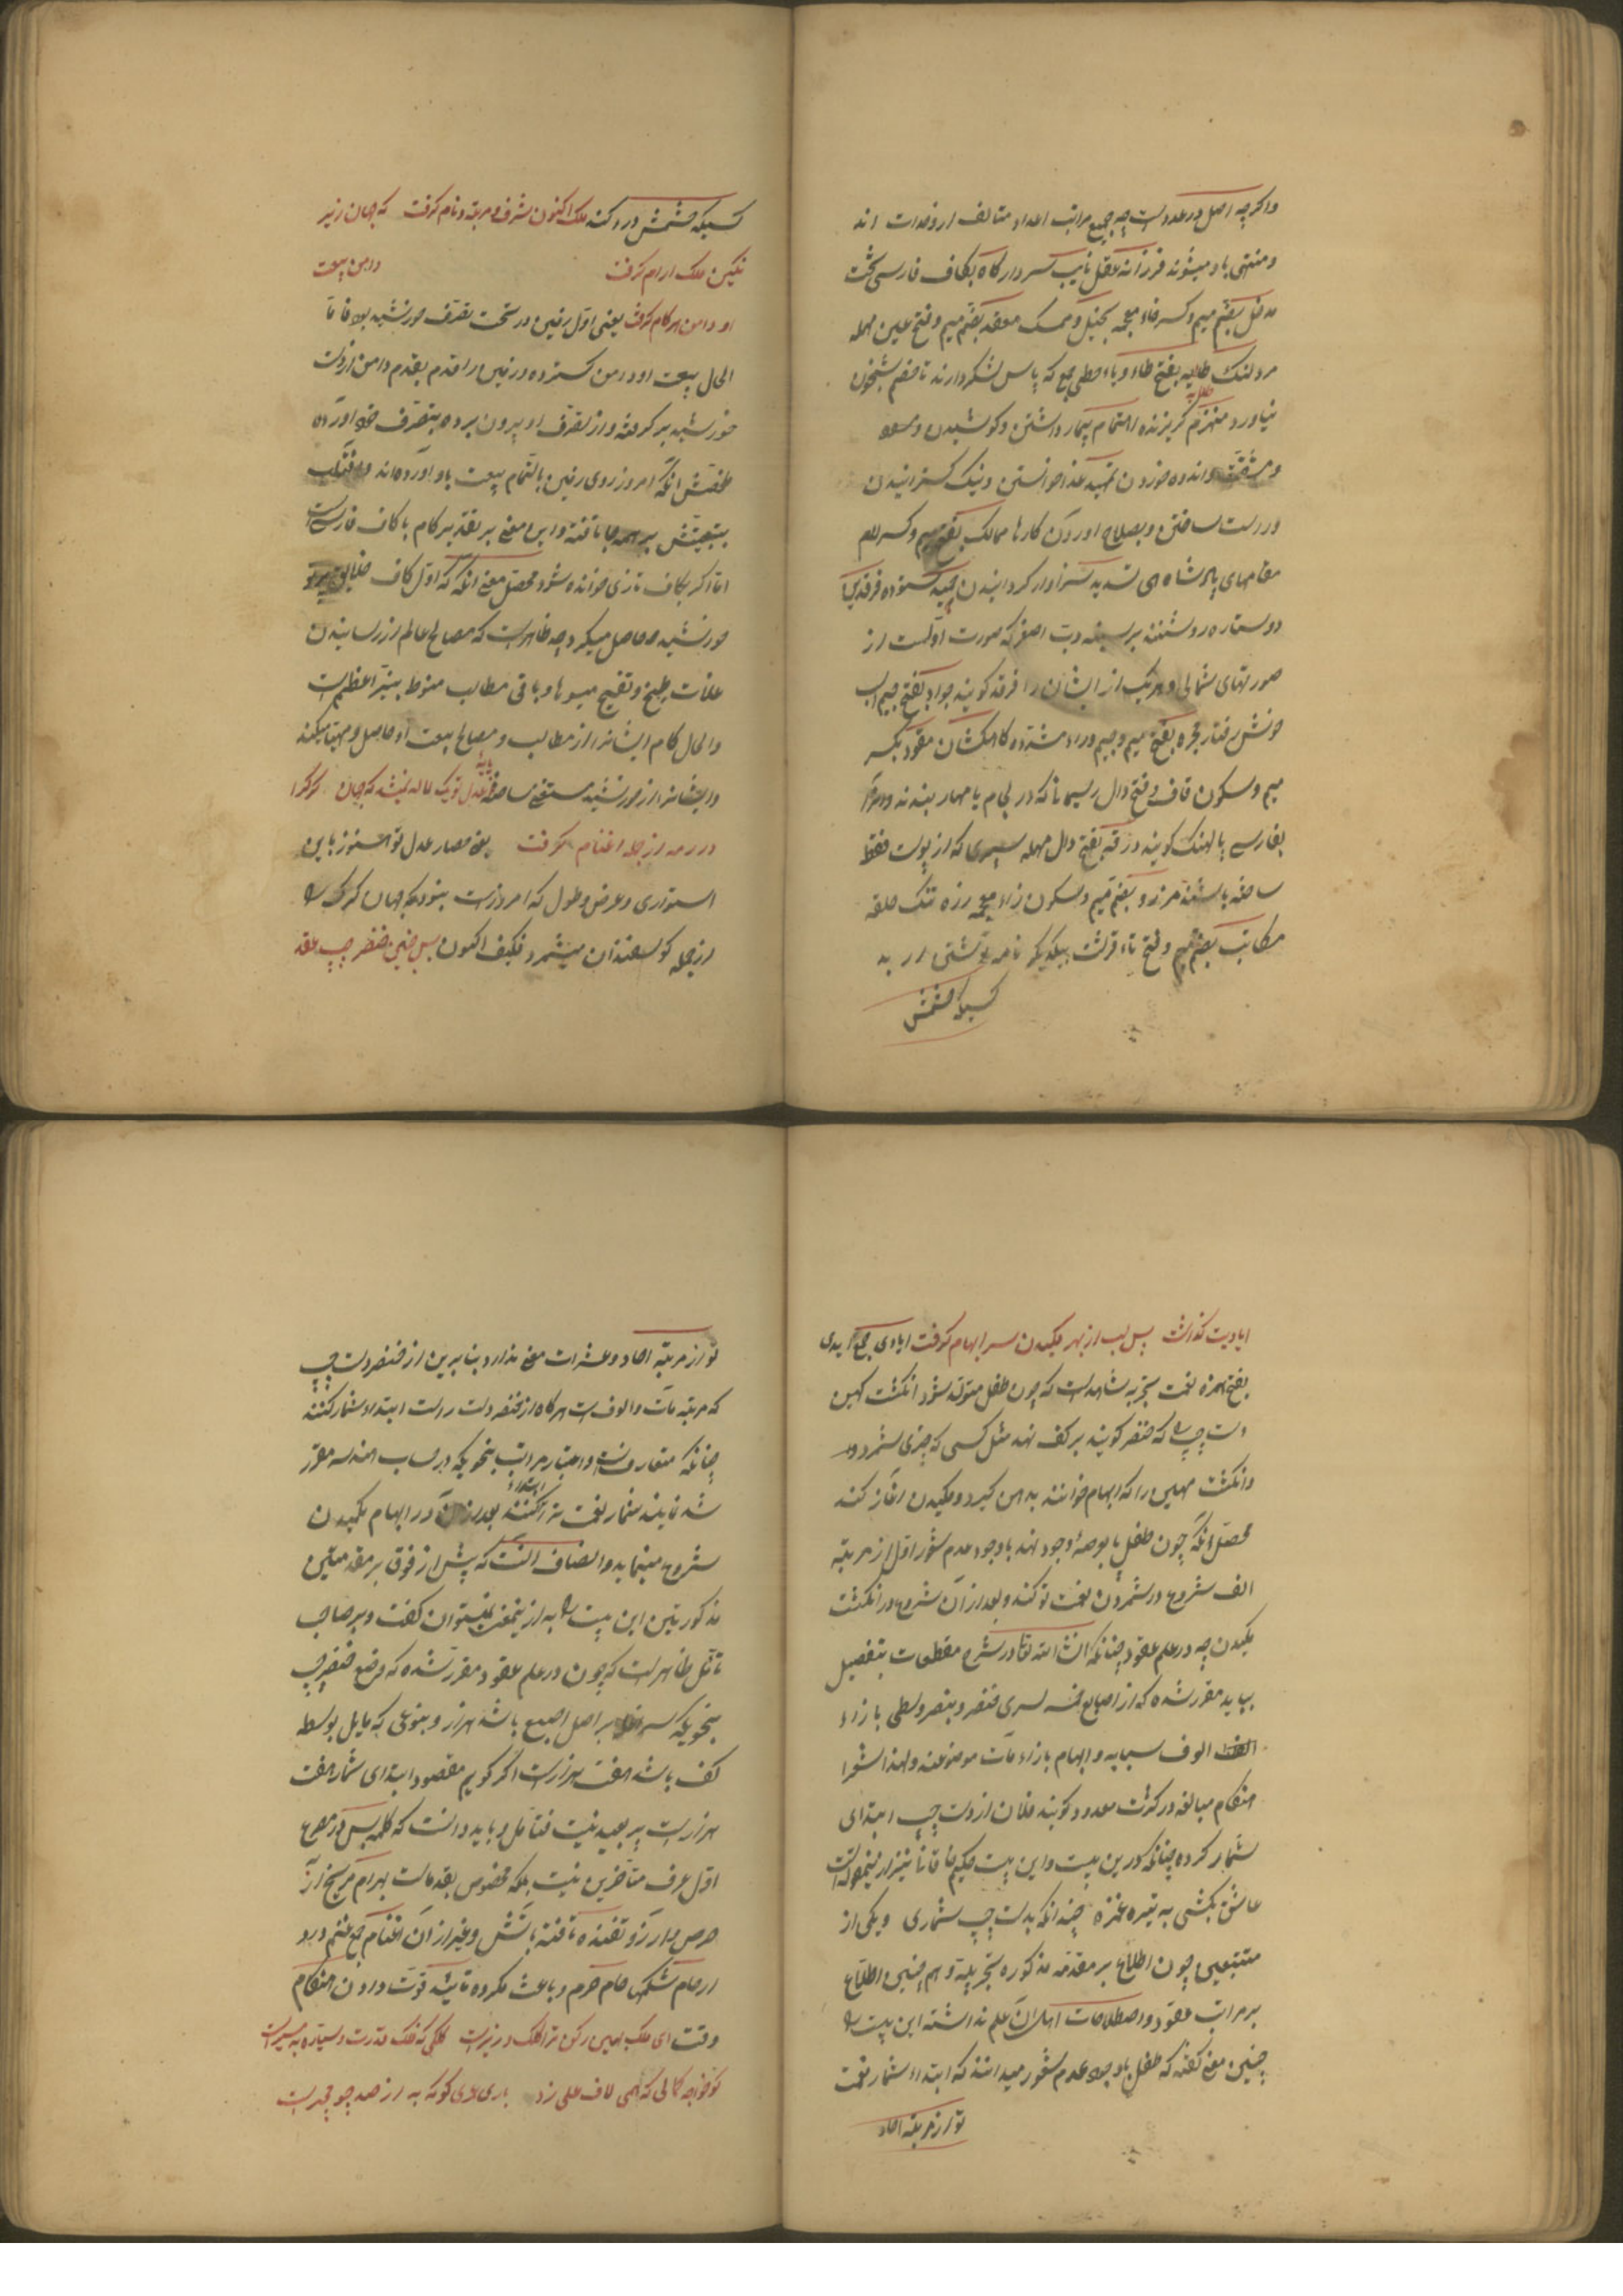 واکرچه اصل در عدد است چه جمیع مراتب اعداد متالف از وحدات اند
و منتهی باو میشوند فرزانه عقل نایب سردار کاه بکاف فارسی تخت
مدخل بضم میم و کسر خاء معجمه بخیل و ممسک معقد بضم میم و فتح عین مهمله
مردلنک طلایه بفتح طاء و یاء حطی جمع که پاس لشکر دارند تا خصم شبخون
طلایه
نیاورد منهزم کریزنده اهتمام تیمار داشتن و کوشیدن و سعی
و مشقت و اندوه خوردن تمهید عذر خواستن و نیک کسترانیدن
و درست ساختن و بصلاح اوردن کارها ممالک بفتح میم و کسر لام
مقامهای پادشاهی تسدید سزاوار کردانیدن ستوده فرقدین
دو ستاره روشنند بر سینه دب اصغر که صورت اولست از
صورتهای شمالی و هریک از ایشان را فرقد کویند جواد بفتح جیم اسب
خوش رفتار مجره بفتح میم و جیم و راء مشدده کاهکشان مقود بکسر
میم و سکون قاف و فتح دال ریسمانی که در لجام یا مهار بندند و انرا
بفارسی پالهنک کویند درقه بفتح دال مهمله سپری که از پوست فقط
ساخته باشند مرزو بفتح میم و سکون زاء معجمه رزه تنک حلقه
مکاتب بضم میم و فتح تاء قرشت بیکدیکر نامه نوشتن ار به
کسیکه خشمش
کسیکه خشمش در دکنه ملک اکنون شرف و مرتبه و نام کرفت که جهان زیر
نکین ملک ارام کرفت دامن بیعت
او دامن هر کام کرفت یعنی اول زمین در تحت تصرف خورشید بود فاما
الحال بیعت او دامن کسترده و زمین را قدم بقدم دامن از دست
خورشید بر کرفته و از تصرف او بیرون برده بتصرف خود اورده
ملخصش انکه امروز روی زمین بالتمام بیعت باو اورده اند و افتاب
بتبعیتش بر همه جا تافته و این معنی بر تقدیر کام با کاف فارسی است
اما اکر بکاف تازی خوانده شود محصل معنی انکه که اول کاف
خورشید حاصل میکرد چه ظاهرست که مصالح عالم از رسانیدن
غلات طبخ و نضج میوها و باقی مطالب منوط بنیر اعظم است
والحال کام ایشانرا از مطالب و مصالح بیعت او حاصل و مهیا میکند
و ایشانرا از خورشید مستغنی ساخته عدل تو یک لاله نبشه که جهان کرکرا
در رمه از جمله اغنام کرفت یعنی حصار عدل تو هنوز باین
استواری و عرض و طول که امروز است نبود که جهان کرک را
از جمله کوسفندان میشمرد فکیف اکنون پس چنین خنصر چپ عقد
ایادیت کذاشت پس لب از بهر مکیدن سر ابهام کرفت ایادی جمع ایدی
بفتح همزه نعمت بتجربه مشاهدست که چون طفل متولد شود انکشت کهین
دست چپ را که خنصر کویند بر کف نهد مثل کسی که چیزی شمرد
و انکشت مهین را که ابهام خوانند بدهن کیرد و مکیدن اغاز کند
محصل انکه چون طفل پا بعرصه وجود نهد با وجود عدم شعور اول از مرتبه
الف شروع در شمردن نعمت تو کند و بعد از آن شروع در انکشت
مکیدن چه در علم عقود چنانکه انشاء الله تعالی در شرح مقطعات بتفصیل
بیاید مقرر شده که از اصابع خمسه یسری خنصر و بنصر و وسطی بازاء
الوف سبابه و ابهام بازاء مآت موضوعند و لهذا شعرا
هنکام مبالغه در کثرت معدود کویند فلان از دست چپ ابتدای
شمار کرده چنانکه درین بیت و این بیت حکیم خاقانی نیز ازینمقوله است
عاشق بکشی به تیره غمزه چندانکه بدست چپ شماری و یکی از
متتبعین چون اطلاع بر مقدمه مذکوره تجربیه و هم چنین اطلاع
بر مراتب عقود و اصطلاحات اهل آن علم نداشته این بیت را
چنین معنی کفته که طفل با وجود عدم شعور میداند که ابتداء شمار نعمت
تو از مرتبه احاد
تو از مرتبه احاد و عشرات معنی ندارد بنابرین از خنصر دست چپ
که مرتبه مآت و الوف است هرکاه از خنصر دست راست ابتداء شمار کنند
چنانکه متعارفست و اعتبار مراتب بنحویکه در حساب هندسه مقرر
شده نمایند شمار نعمت ترا ابتداء کنند بعد از آن در ابهام مکیدن
شروع مینماید و انصاف انست که پیش از وقوف بر مقدمتین
مذکورتین این بیت را به ازینمعنی نمیتوان کفت و بر صاحب
تامل ظاهرست که چون در علم عقود مقرر شده که وضع خنصر چپ
بنحویکه سر انمله بر اصل اصبع باشد هزار و بنوعی که مایل بوسط
کف باشد هفت هزارست اکر کوییم مقصود ابتدای شمار هفت
هزارست پر بعید نیست فتامل و باید دانست که کلمه پس در مصرع
اول بعرف متاخرین نیست بلکه مخصوص بقدماست بهرام مریخ از
حرص و ارزو تفنده تافته باتش و غیر از آن اغنام جمع غنم و رو
ارحام شکمها حام حرم و باعث مکروه تایید قوت دادن هنکام
وقت ای ملک بهین رکن ترا کلک وزیرست کلکی که فلک قدرت و سیاره مسیرست
کو خواجه کمالی که همی لاف علی زد باری عدی کو که به از صد چو جریرست